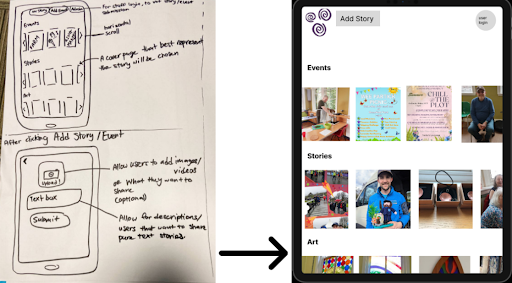 For staff login, to our story/event
submission.
Add Event
Events
horizontal
scroll
Stories
A cover page that best represent
the story will be chosen
Art
After clicking Add Story/Event
Allow users to add images/
videos
of what they want to
share
(optional)
Upload
Text box
Submit
Allow for descriptions/
users that want to share
pure text stories.
Add Story
user
login
Events
CHILL
THE
PLOT
Stories
Art